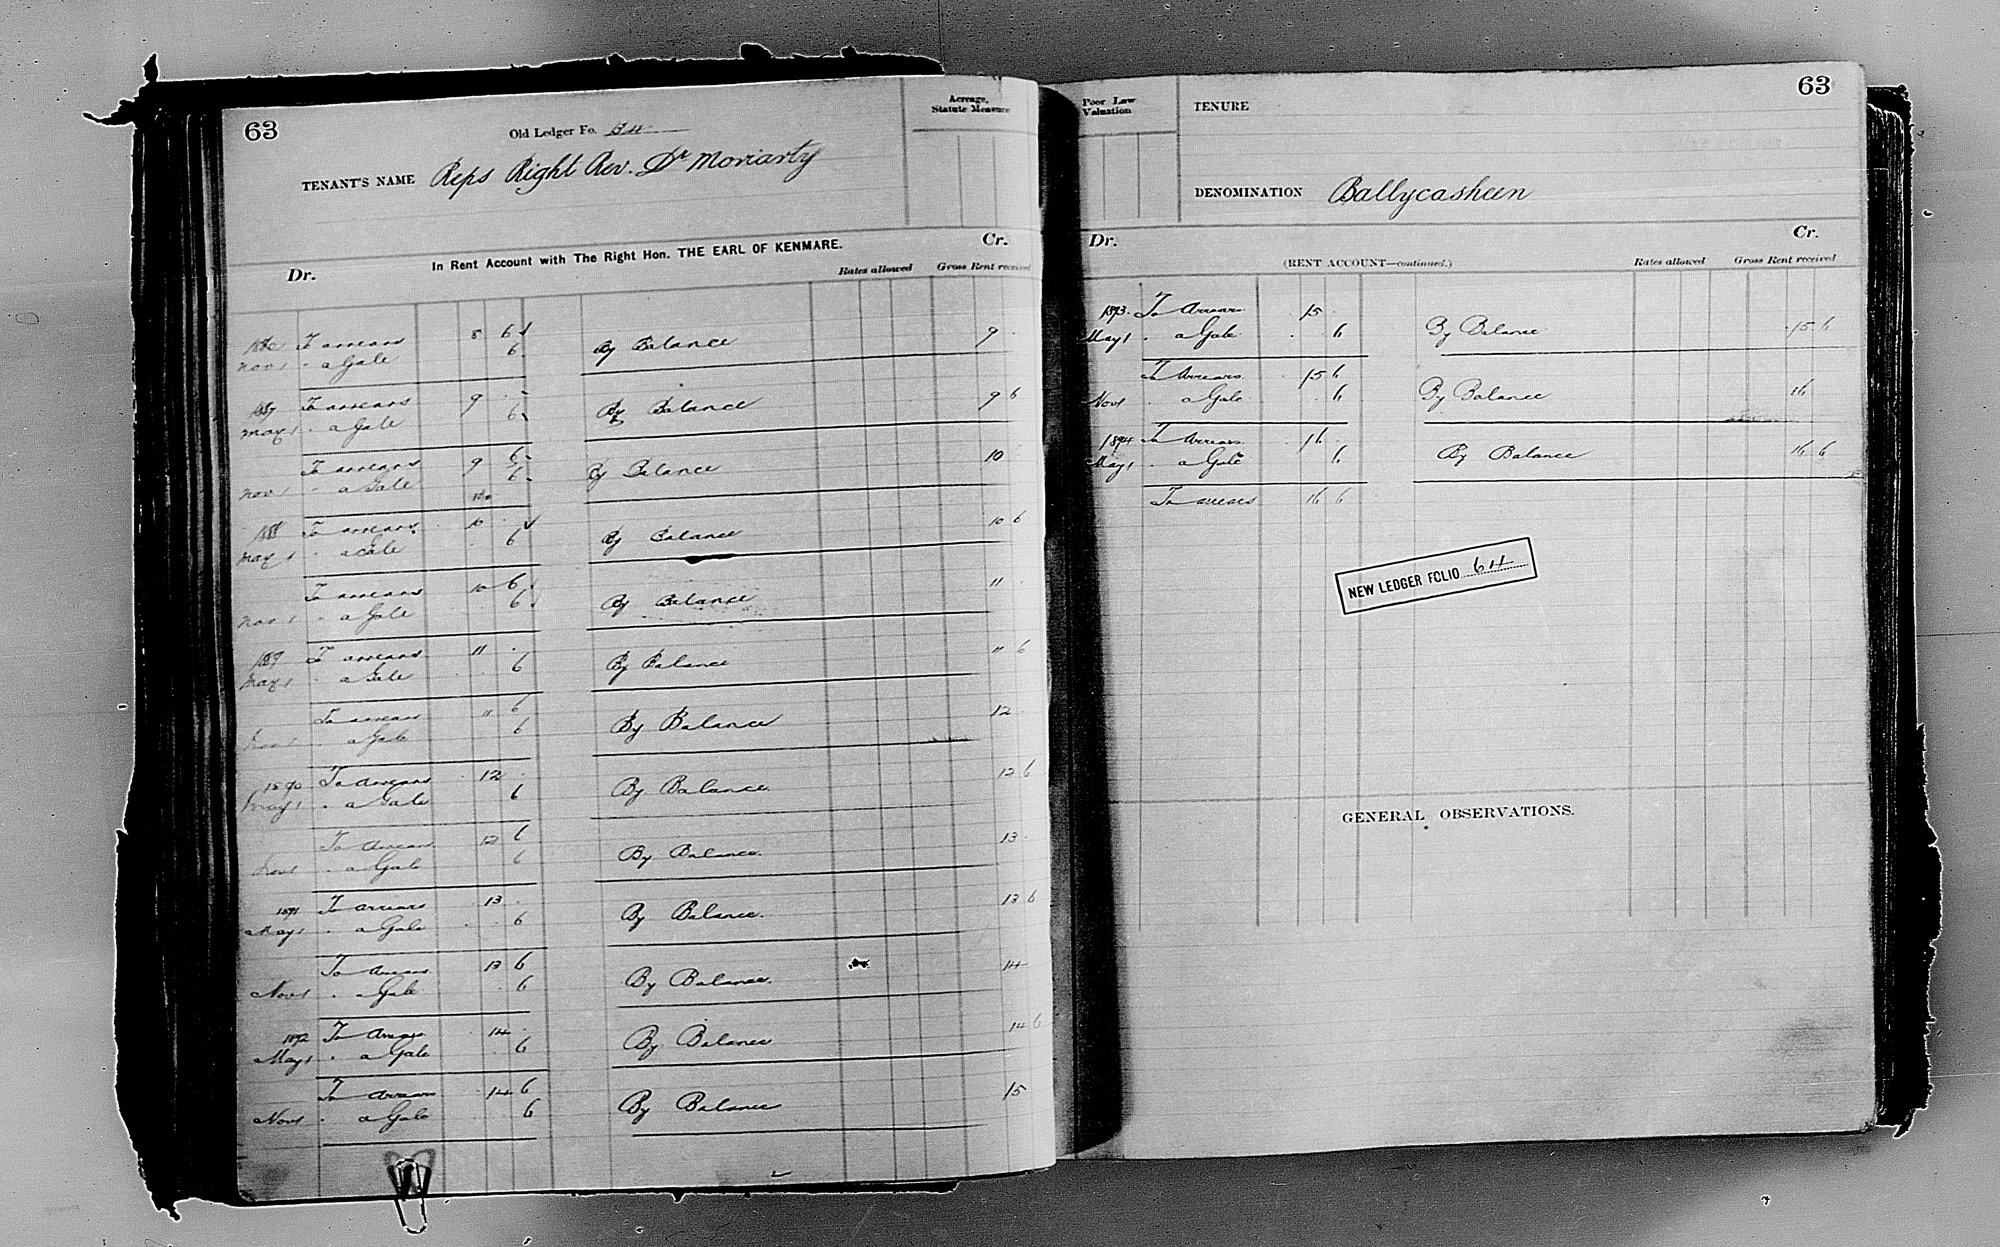 63
Old Ledger Fo. 64
Acreage,
Statute Measure
TENANT'S NAME Reps Right Rev. Dr Moriarty
In Rent Account with The Right Hon. THE EARL OF KENMARE.
Dr. Cr.
Rates allowed Gross Rent received
To arrears 8 6
Nov 1 . a Gale 6 By Balance 9 .
1887 To arrears 9 . -
May 1 . a Gale 6 By Balance 9 6
To arrears 9 6
Nov 1 . a Gale 6 By Balance 10
1888 To arrears 10 .
May 1 . a Gale 6 By Balance 10 6
To arrears 10 6
Nov 1 . a Gale 6 By Balance 11
1889 To arrears 11 .
May 1 . a Gale 6 By Balance 11 6
To arrears 11 6
Nov 1 . a Gale 6 By Balance 12
1890 To arrears 12 .
May 1 . a Gale 6 By Balance 12 6
To arrears 12 6
Nov 1 . a Gale 6 By Balance 13
1891 To arrears 13 .
May 1 . a Gale 6 By Balance 13 6
To arrears 13 6
Nov 1 . a Gale 6 By Balance 14
1892 To arrears 14 .
May 1 . a Gale 6 By Balance 14 6
To arrears 14 6
Nov 1 . a Gale 6 By Balance 15
63
Poor Law
Valuation
TENURE
DENOMINATION Ballycasheen
Dr. Cr.
(RENT ACCOUNT—continued.)
Rates allowed Gross Rent received
1893. To Arrears 15
May 1 . a Gale . 6 By Balance 15 6
To Arrears 15 6
Nov 1 a Gale . 6 By Balance 16
1894 To Arrears 16 .
May 1 . a Gale 6 By Balance 16 6
To arrears 16 6
NEW LEDGER FOLIO 64
GENERAL OBSERVATIONS.